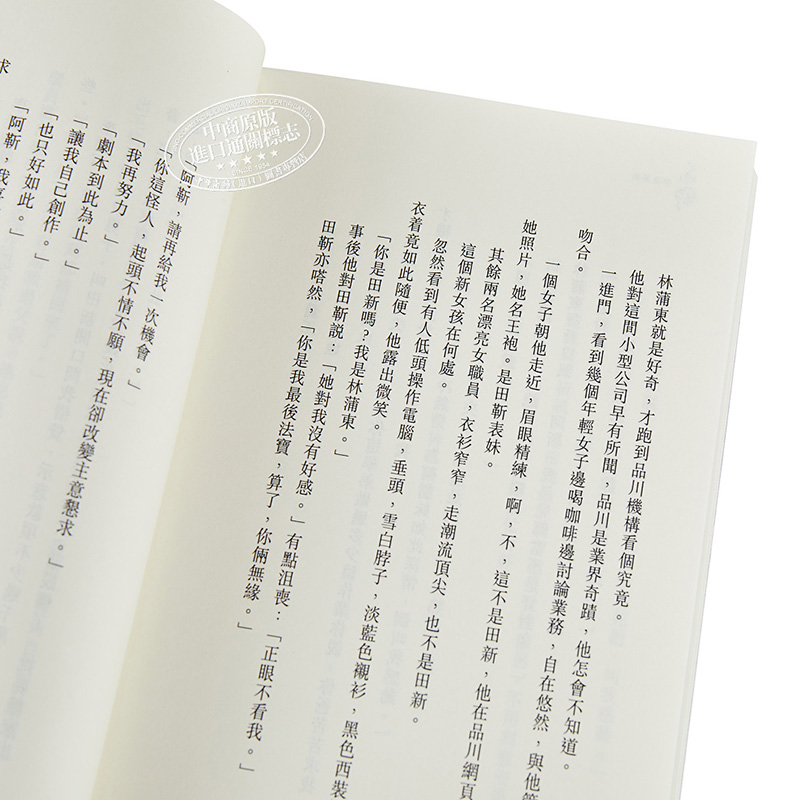 林蒲東就是好奇，才跑到品川機構看個究竟。
他對這間小型公司早有所聞，品川是業界奇蹟，他怎會不知道。
一進門，看到幾個年輕女子邊喝咖啡邊討論業務，自在悠然，與他
吻合。
一個女子朝他走近，眉眼精練，啊，不，這不是田新，他在品川網頁
她照片，她名王袍。是田靳表妹。
其餘兩名漂亮女職員，衣衫窄窄，走潮流頂尖，也不是田新。
這個新女孩在何處。
忽然看到有人低頭操作電腦，垂頭，雪白脖子，淡藍色襯衫，黑色西裝
衣着竟如此隨便，他露出微笑。
「你是田新嗎？我是林蒲東。」
事後他對田靳説：「她對我沒有好感。」有點沮喪：「正眼不看我。」
田靳亦嗒然，「你是我最後法寶，算了，你倆無緣。」
「阿靳，請再給我一次機會。」
「你這怪人，起頭不情不願，現在卻改變主意懇求。」
「我再努力。」
「劇本到此為止。」
「讓我自己創作。」
「也只好如此。」
「阿靳，我
求
中商原版
進口通關標志